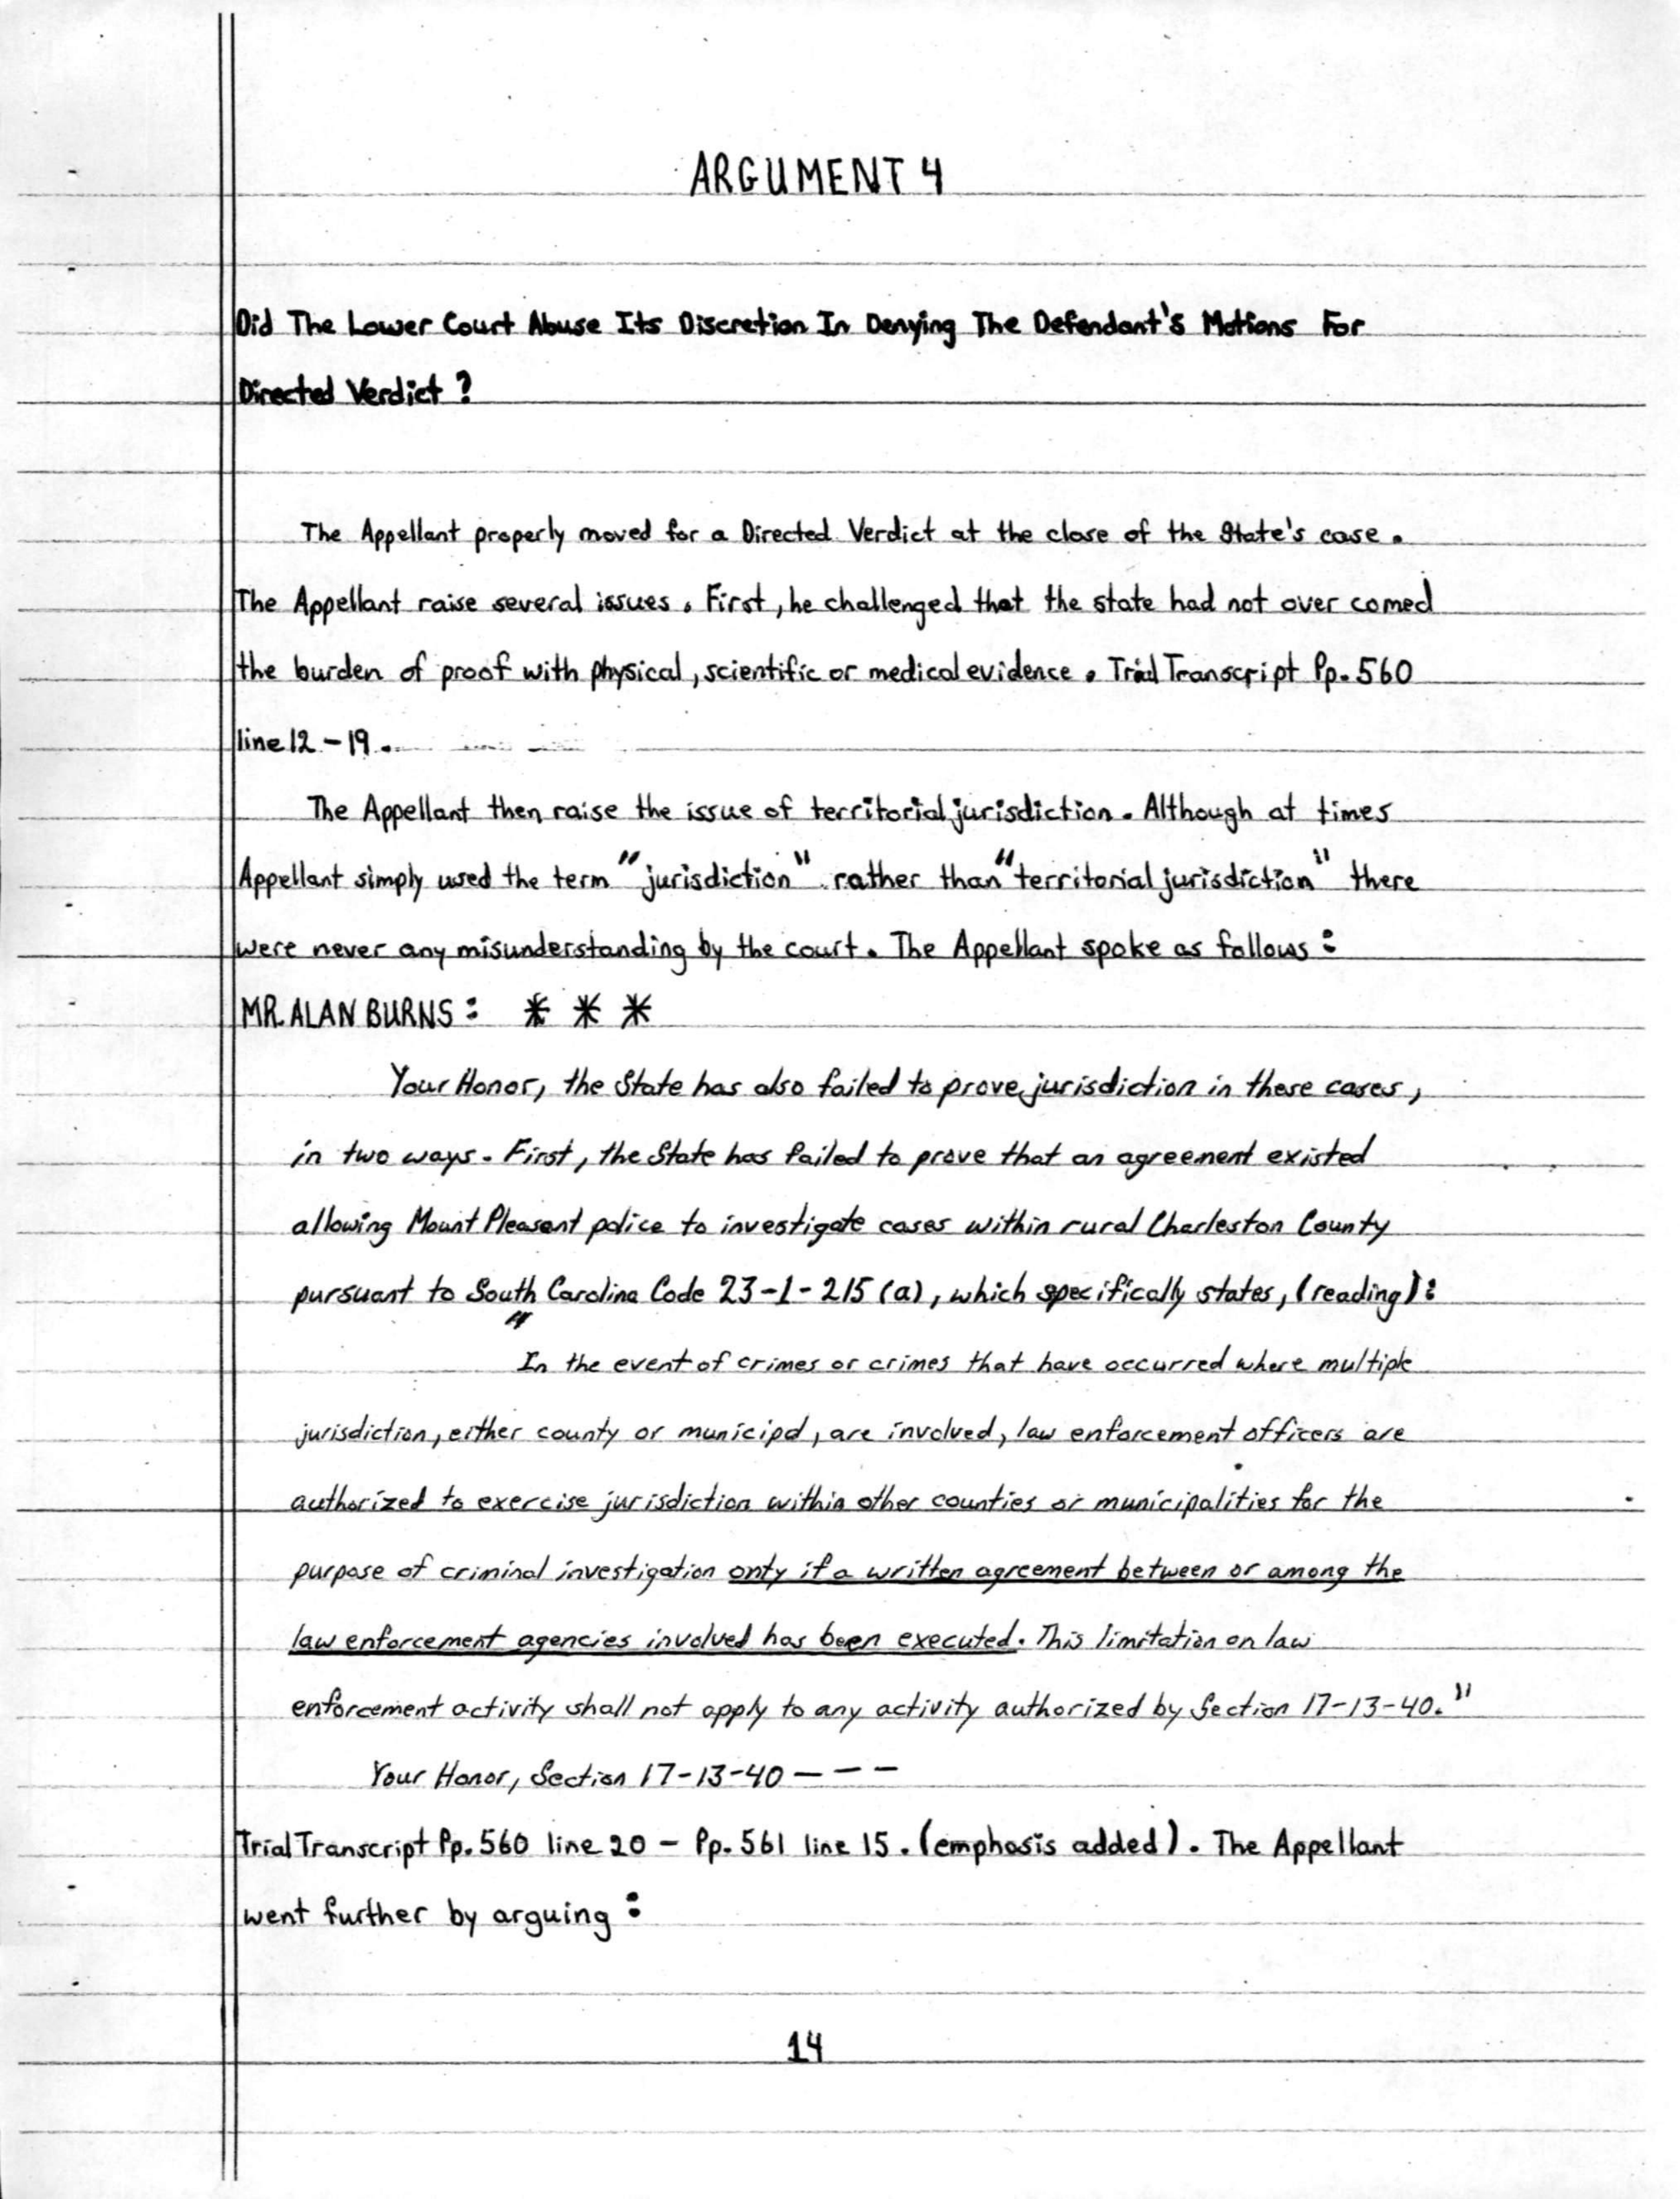 ARGUMENT 4
Did The Lower Court Abuse Its Discretion In Denying The Defendant's Motions For
Directed Verdict?
The Appellant properly moved for a Directed Verdict at the close of the State's case.
The Appellant raise several issues. First, he challenged that the state had not over comed
the burden of proof with physical, scientific or medical evidence. Trial Transcript Pp. 560
line 12-19.
The Appellant then raise the issue of territorial jurisdiction. Although at times
Appellant simply used the term "jurisdiction" rather than "territorial jurisdiction" there
were never any misunderstanding by the court. The Appellant spoke as follows:
MR. ALAN BURNS: * * *
Your Honor, the State has also failed to prove jurisdiction in these cases,
in two ways. First, the State has failed to prove that an agreement existed
allowing Mount Pleasant police to investigate cases within rural Charleston County
pursuant to South Carolina Code 23-1-215(a), which specifically states, (reading):
"In the event of crimes or crimes that have occurred where multiple
jurisdiction, either county or municipal, are involved, law enforcement officers are
authorized to exercise jurisdiction within other counties or municipalities for the
purpose of criminal investigation only if a written agreement between or among the
law enforcement agencies involved has been executed. This limitation on law
enforcement activity shall not apply to any activity authorized by Section 17-13-40."
Your Honor, Section 17-13-40 - - -
Trial Transcript Pp. 560 line 20 - Pp. 561 line 15. (emphasis added). The Appellant
went further by arguing:
14